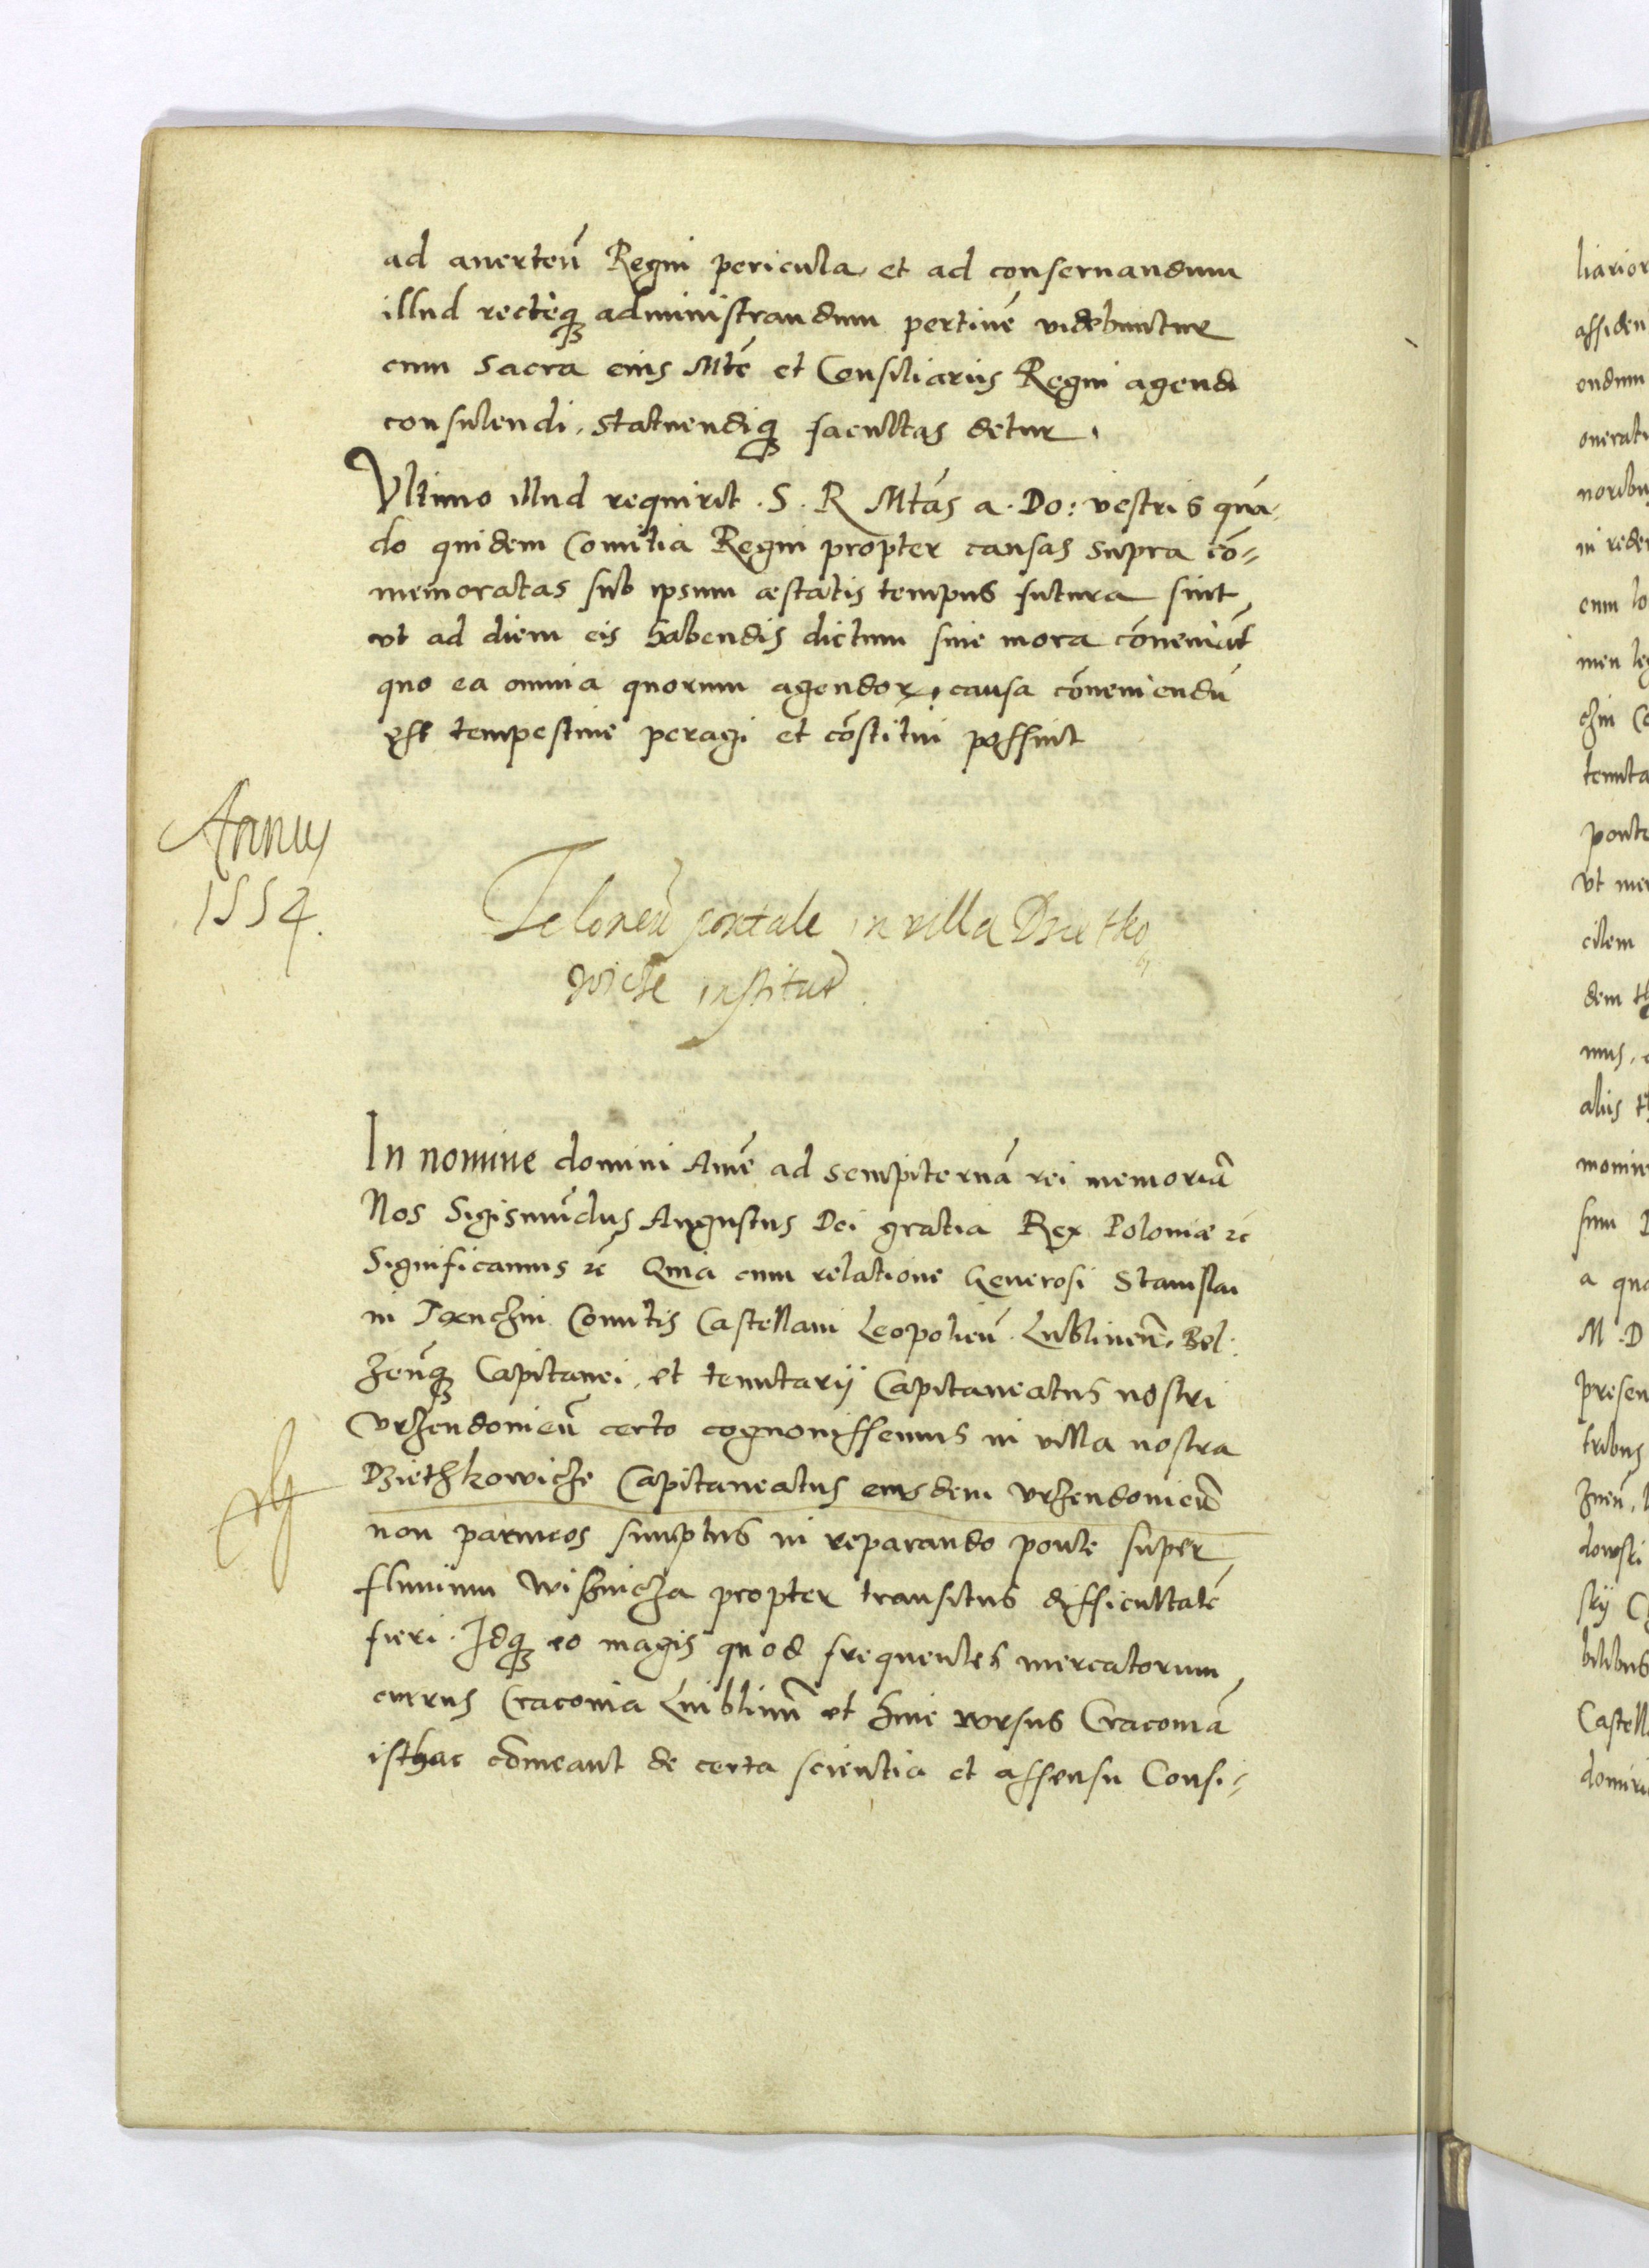 ad auerteñ Regni pericula et ad conseruandum
illud recteq₃ administrandum pertinē videbuntur
cum Sacra eius Mtē et Consiliariis Regni agendi
consulendi, statuendiq₃ facultas detur.
Vltimo illud requirit. S. R Mtās a. Do: vestris quā-
do quidem Comitia Regni propter causas supra cō-
memoratas sub ipsum æstatis tempus futura sint,
vt ad diem eis habendis dictum sine mora cōueniāt
quo ea omnia quorum agendoꝝ causa cōueniendū
est tempestiue peragi et cōstitui possint
Annus
1554.
Teloneū pontale in villa Dzietko
wicze institut̄.
In nomine domini Amē ad sempiternā rei memoriā
Nos Sigismūdus Augustus Dei gratia Rex Poloniæ ꝛc
Significamus ꝛc Quia cum relatione Generosi Stanislai
in Tenczin Comitis Castellani Leopolieñ. Lublineñ. Bel-
zeñq₃ Capitanei, et tenutarij Capitaneatus nostri
Vrzendouieñ certo cognouissemus in villa nostra
Dziethkowicze Capitaneatus eiusdem Vrzendouieñ
non paruos sumptus in reparando ponte super
fluuium Wisznicza propter transitus difficultatē
fieri. Idq₃ eo magis quod frequentes mercatorum
currus Cracouia Lublinū et hinc rorsus Cracouiā
isthac cōmeant de certa scientia et assensu Consi-